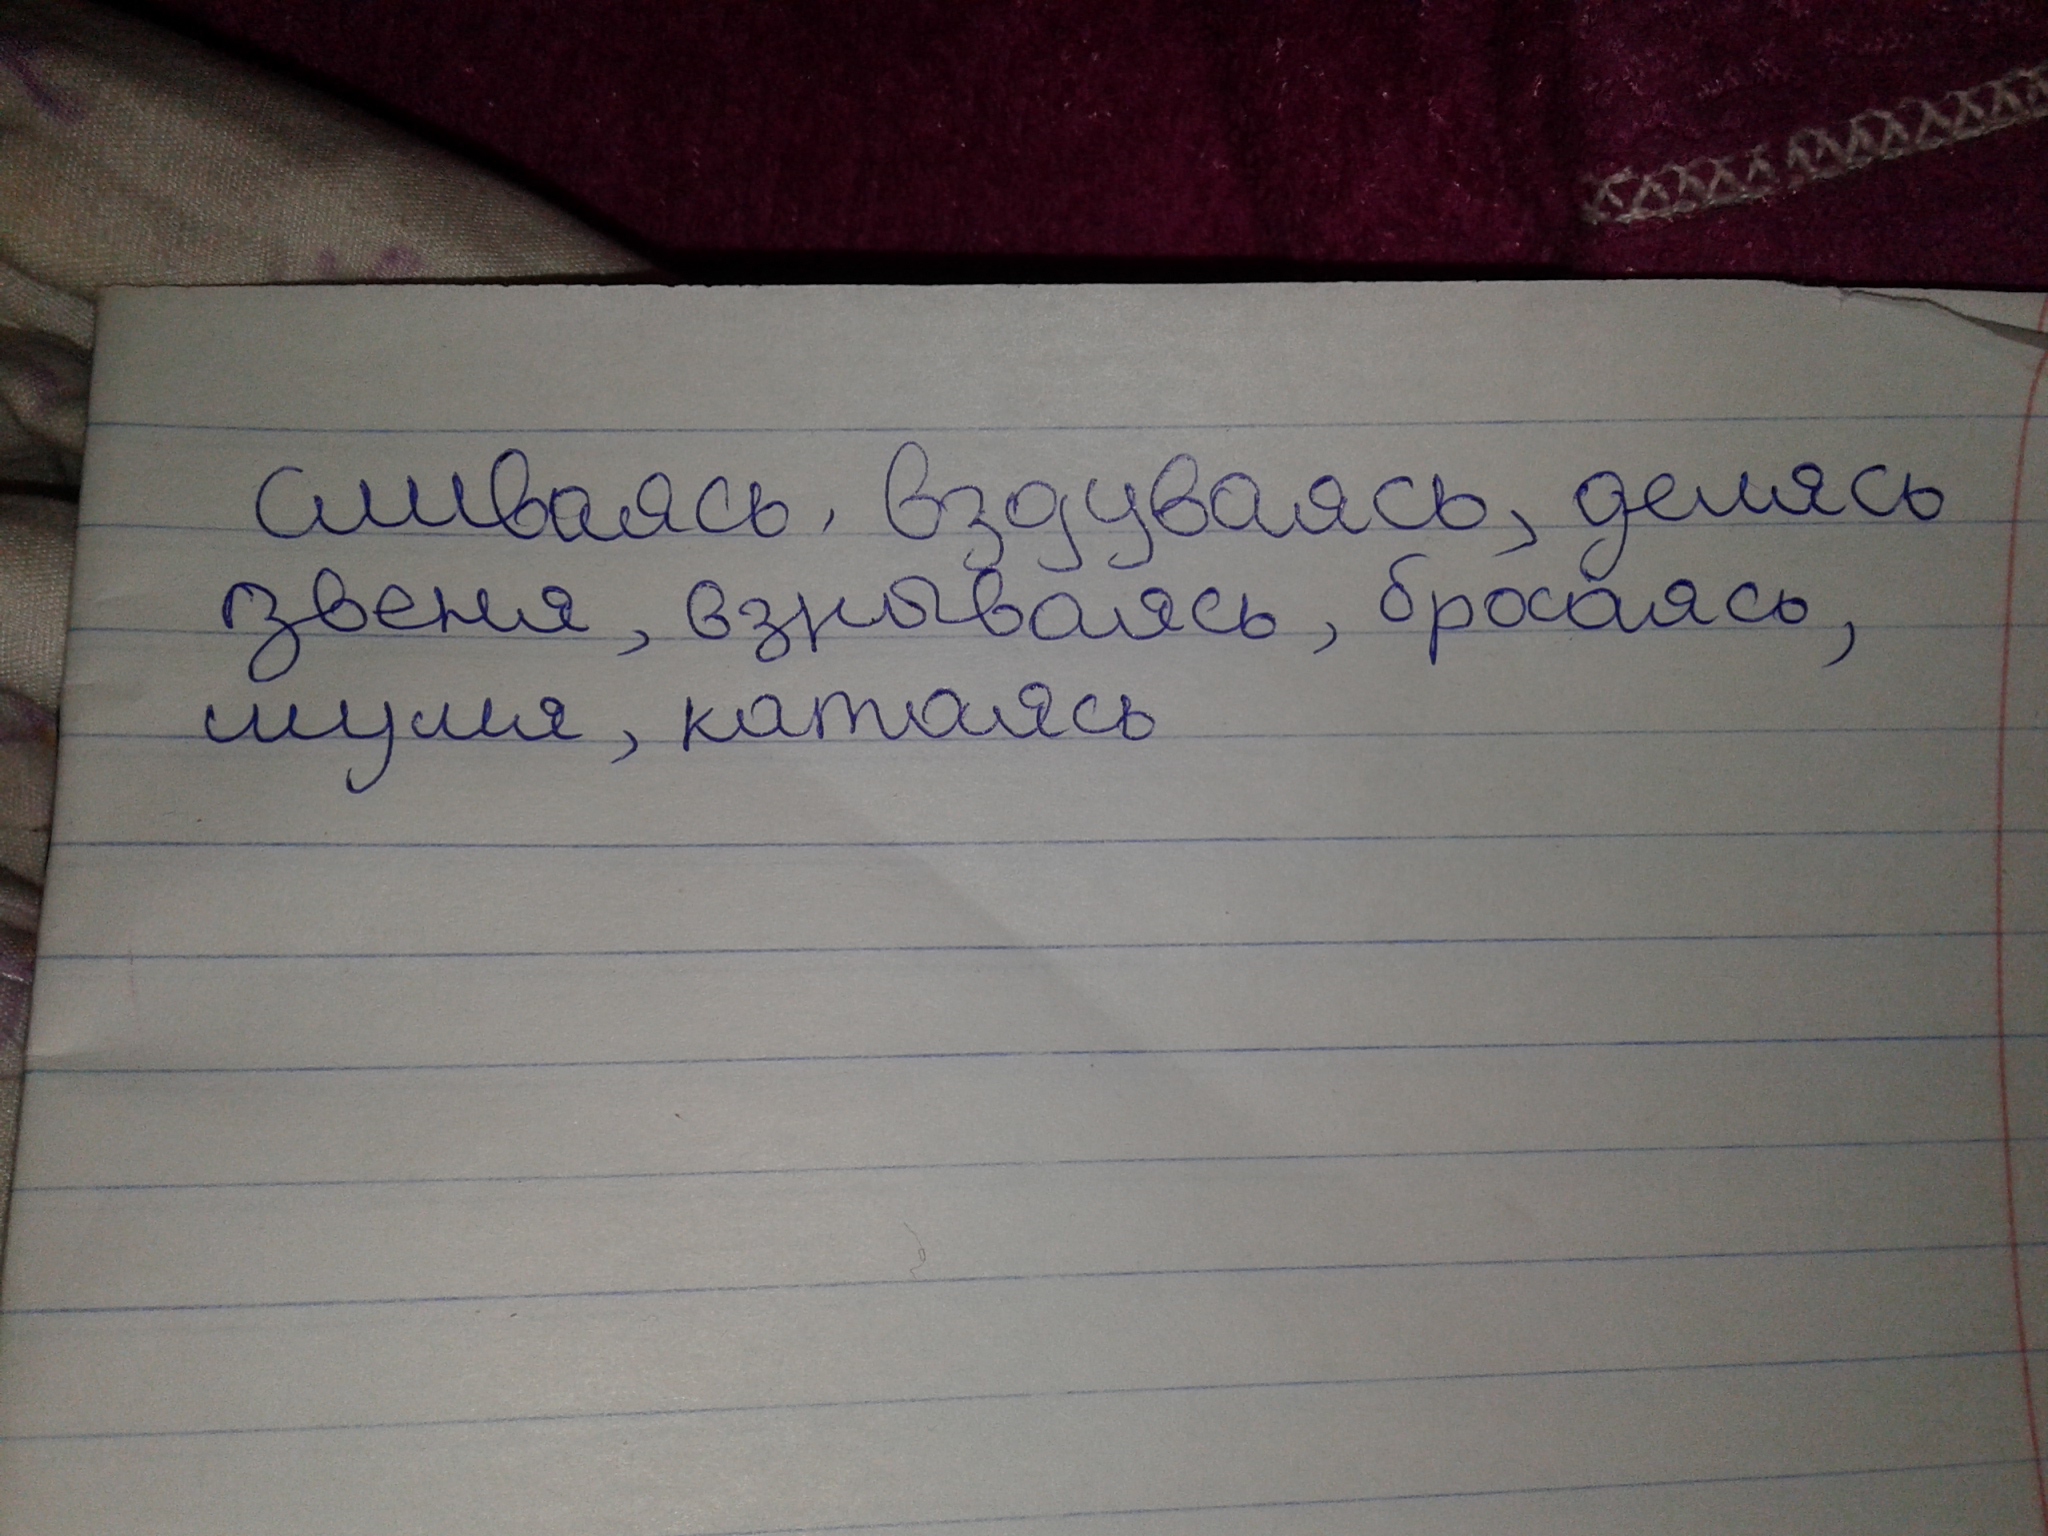 сливаясь, вздуваясь, делясь
звеня, взрываясь, бросаясь,
шумя, катаясь